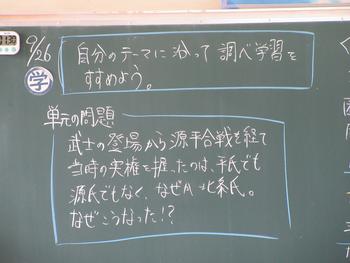 9/26
自分のテーマに沿って調べ学習を
すすめよう。
学
単元の問題
武士の登場から源平合戦を経て
当時の実権を握ったのは、平氏でも
源氏でもなく、なぜか北条氏。
なぜこうなった!?